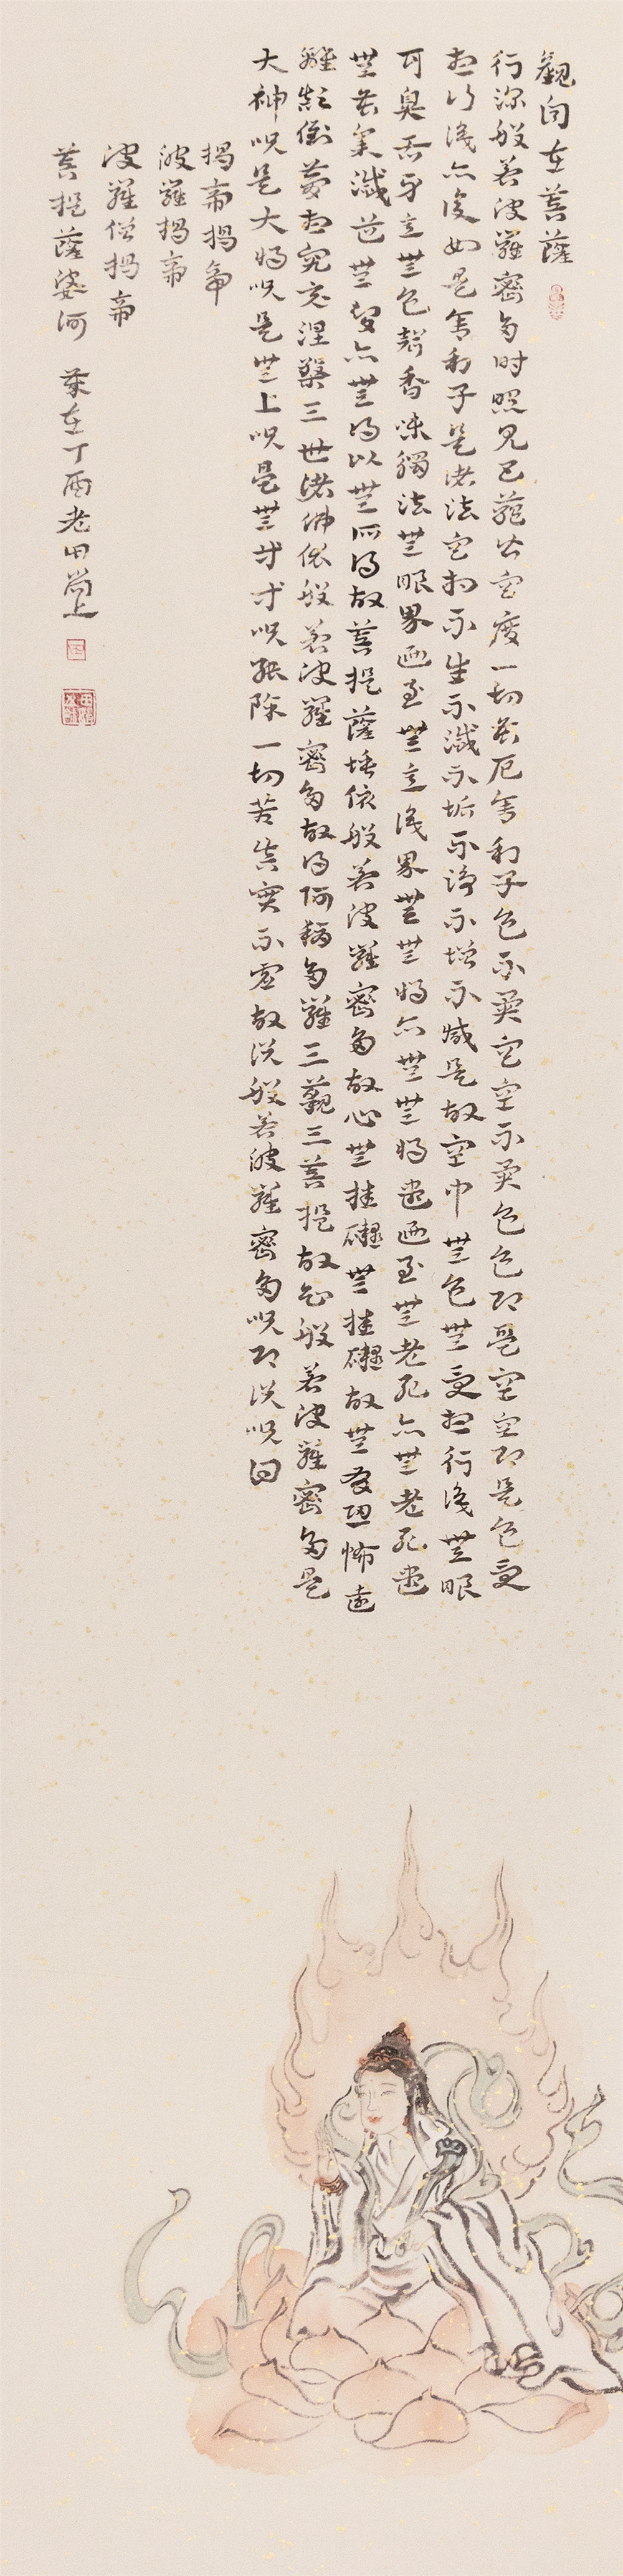 觀自在菩薩
行深般若波羅密多時照見五蘊皆空度一切苦厄舍利子色不異空空不異色色即是空空即是色受
想行識亦復如是舍利子是諸法空相不生不滅不垢不淨不增不減是故空中無色無受想行識無眼
耳鼻舌身意無色聲香味觸法無眼界迺至無意識界無無明亦無無明盡迺至無老死亦無老死盡
無苦集滅道無智亦無得以無所得故菩提薩埵依般若波羅密多故心無挂礙無挂礙故無有恐怖遠
離顛倒夢想究竟涅槃三世諸佛依般若波羅密多故得阿耨多羅三藐三菩提故知般若波羅密多是
大神呪是大明呪是無上呪是無等等呪能除一切苦真實不虛故說般若波羅密多呪即說呪曰
揭帝揭帝
波羅揭帝
波羅僧揭帝
菩提薩婆河 歲在丁酉老田